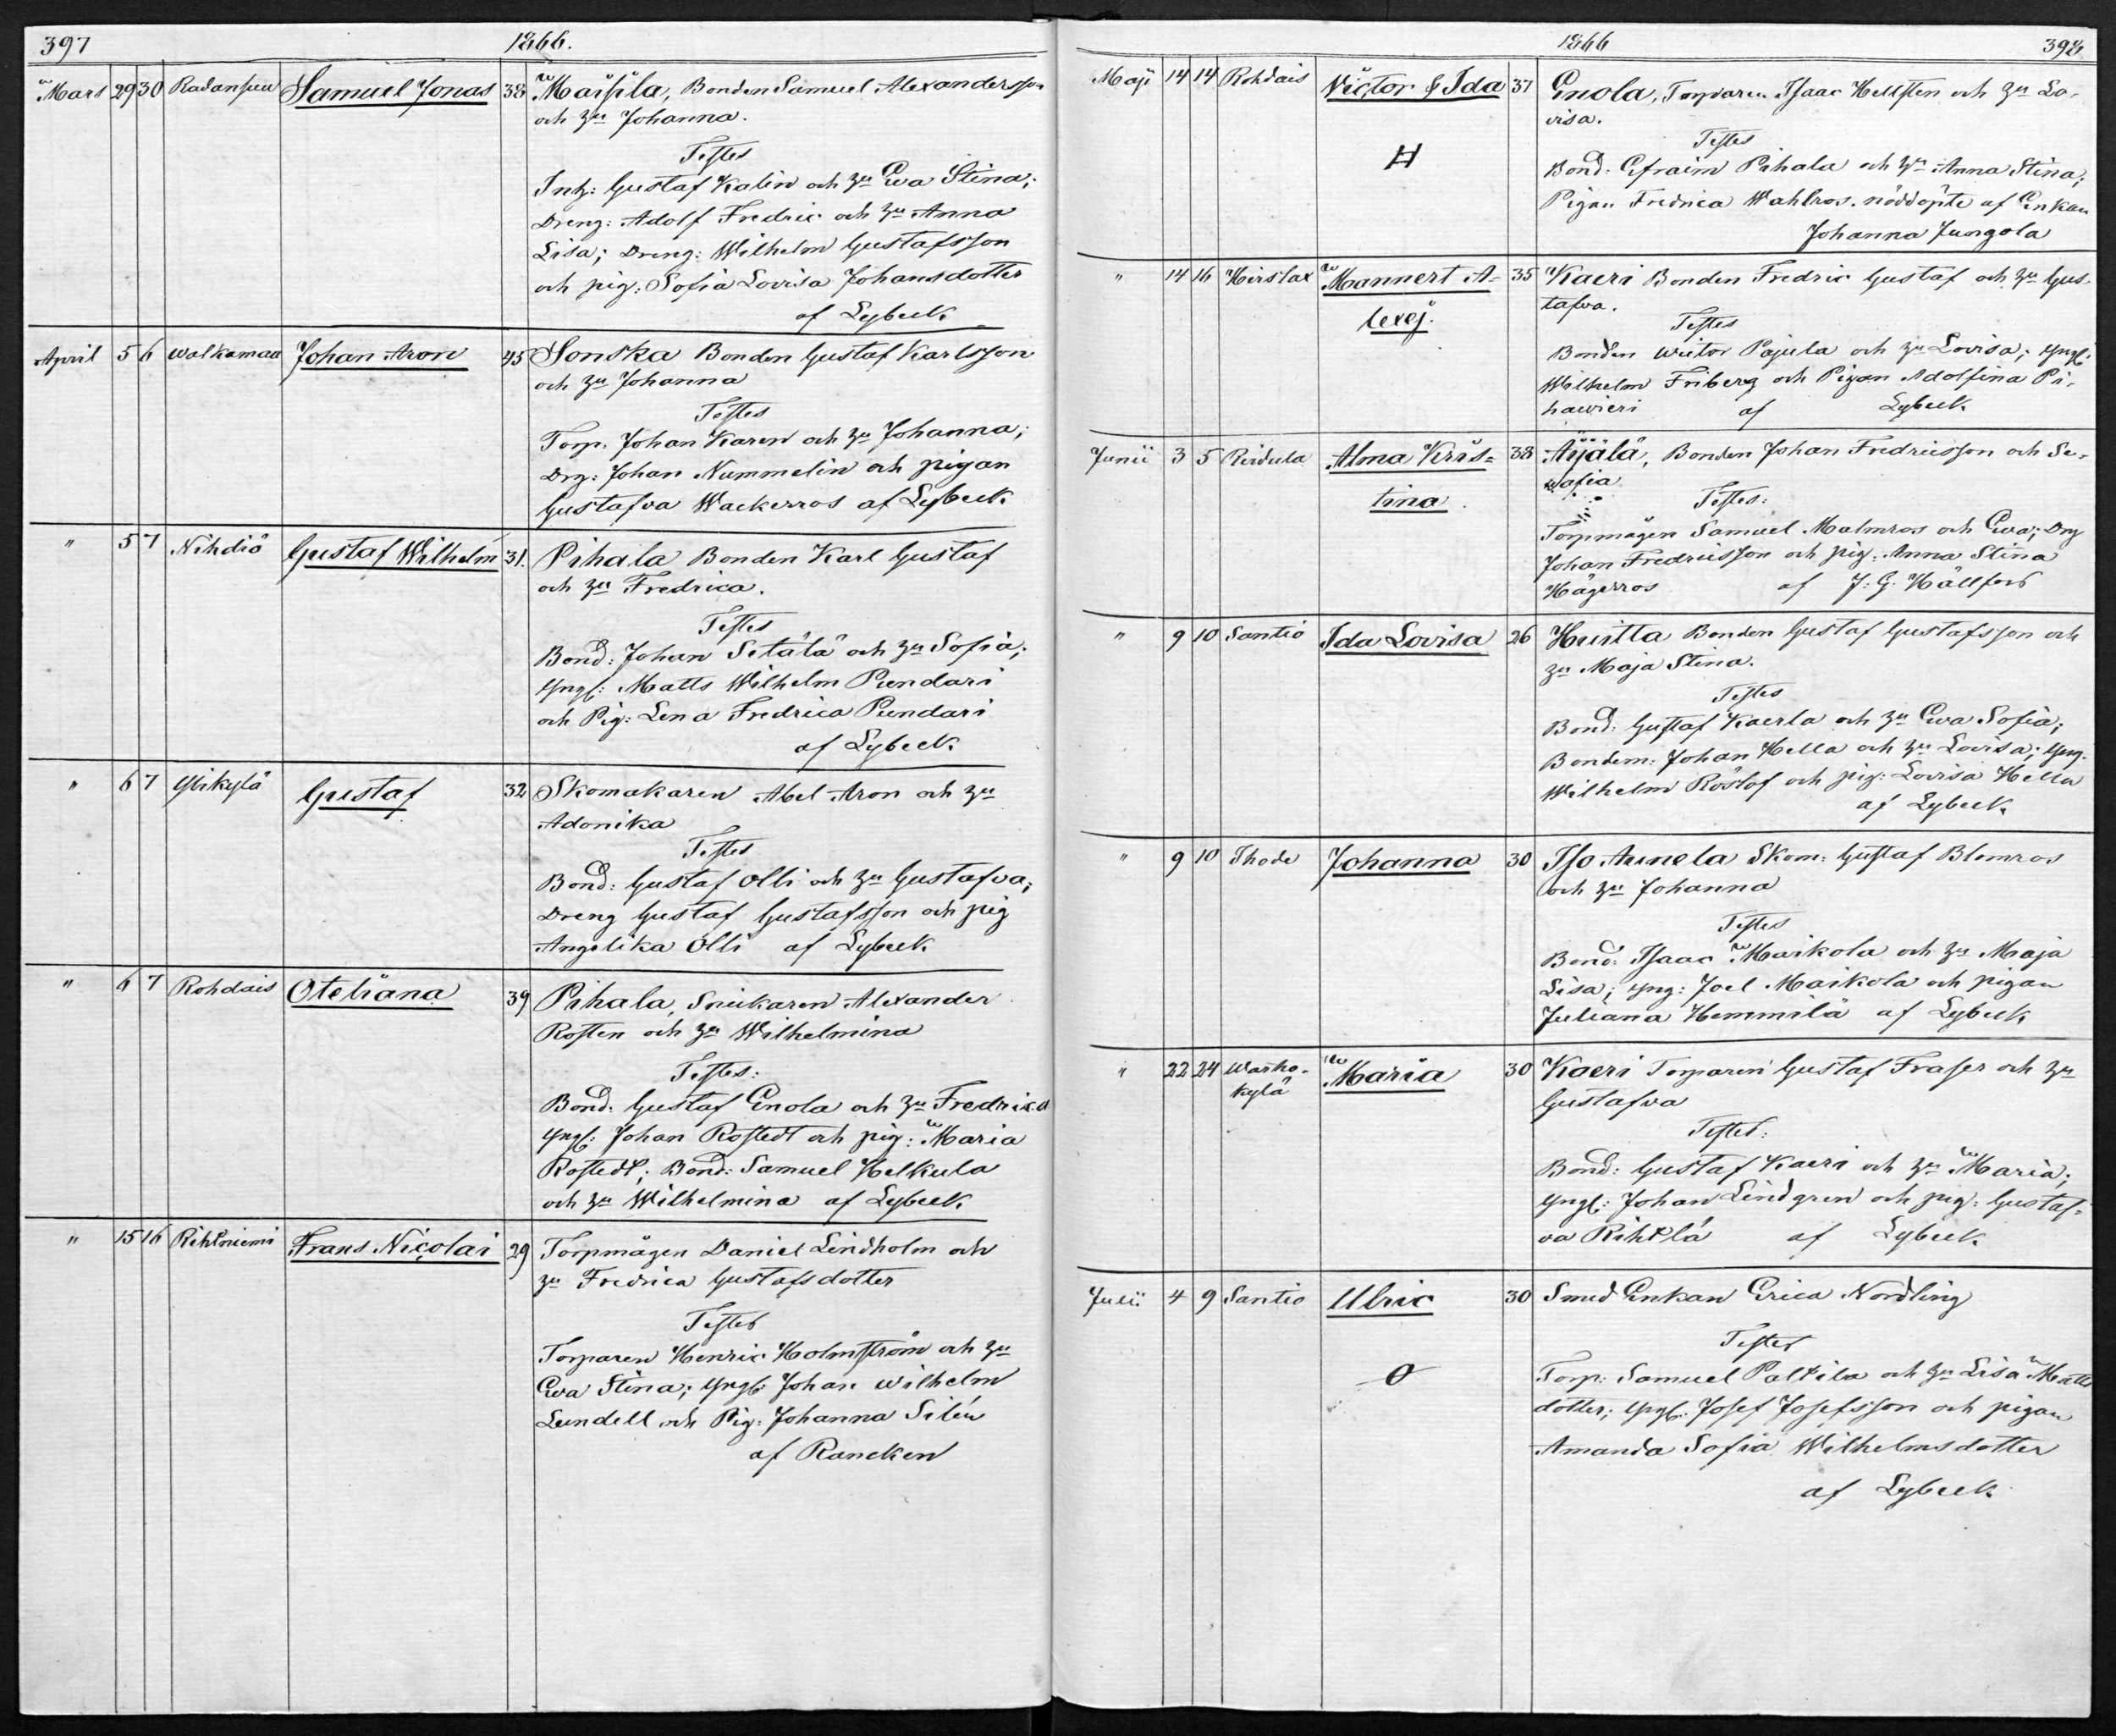 397 1866.
Mars 29 30 Radansuu Samuel Jonas 38 Maisila, Bonden Samuel Alexandersson
och hu Johanna.
Testes
Inh: Gustaf Kalin och hu Ewa Stina;
Dreng: Adolf Fredric och hu Anna
Lisa; Dreng: Wilhelm Gustafsson
och pig: Sofia Lovisa Johansdotter
af Lybeck
April 5 6 Walkamaa Johan Aron 45 Sonska Bonden Gustaf Karlsson
och hu Johanna
Testes
Torp. Johan Karen och hu Johanna;
Drg: Johan Nummelin och pigan
Gustafva Wackerros af Lybeck
" 5 7 Nihdiö Gustaf Wilhelm 31. Pihala Bonden Karl Gustaf
och hu Fredrica.
Testes
Bond: Johan Sitälä och hu Sofia;
Yngl: Matts Wilhelm Pundari
och Pig: Lena Fredrica Pundari
af Lybeck
" 6 7 Ylikylä Gustaf 32 Skomakaren Abel Aron och hu
Adonika
Testes
Bond: Gustaf Olli och hu Gustafva;
Dreng Gustaf Gustafsson och pig
Angelika Olli af Lybeck
" 6 7 Rohdais Oteliana 39 Pihala, Snickaren Alexander
Rosten och hu Wilhelmina
Testes:
Bond: Gustaf Enola och hu Fredrica
Yngl: Johan Rostedt och pig: Maria
Rostedt; Bond: Samuel Helkula
och hu Wilhelmina af Lybeck
" 15 16 Rihtniemi Frans Nicolai 29 Torpmågen Daniel Lindholm och
hu Fredrica Gustafsdotter
Testes
Torparen Henric Holmström och hu
Ewa Stina; Yngl: Johan Wilhelm
Lundell och Pig: Johanna Silén
af Rancken
1866 398
Maji 14 14 Rohdais Victor & Ida 37 Enola, Torparen Isaac Hellsten och hu Lo-
visa.
Testes
H Bond: Efraim Pihala och hu Anna Stina;
Pigan Fredrica Wahlros. nöddöpte af Enkan
Johanna Jungola
" 14 16 Hirslax Mannert A- 35 Kaeri Bonden Fredric Gustaf och hu Gus-
lexej. tafva.
Testes
Bonden Wictor Pajula och hu Lovisa; Yngl:
Wilhelm Friberg och Pigan Adolfina Pi-
hawieri af Lybeck
Junii 3 5 Reidula Alma Kris- 38 Äijälä, Bonden Johan Fredricsson och Se-
tina rafia
Testes:
Torpmågen Samuel Malmros och Ewa; Drg
Johan Fredricsson och pig: Anna Stina
Hägerros af J: G. Hällfors
" 9 10 Santio Ida Lovisa 26 Huitta Bonden Gustaf Gustafsson och
hu Maja Stina.
Testes
Bond: Gustaf Kaerla och hu Ewa Sofia;
Bondem: Johan Hella och hu Lovisa; Yng:
Wilhelm Röslöf och pig: Lovisa Hella
af Lybeck
" 9 10 Ihode Johanna 30 Iso Annela Skom: Gustaf Blomros
och hu Johanna
Testes
Bond: Isaac Maikola och hu Maja
Lisa; Yng: Joel Maikola och pigan
Juliana Hemmilä af Lybeck
" 22 24 Warho- Maria 30 Kaeri Torparen Gustaf Fraser och hu
kylä Gustafva
Testes:
Bond: Gustaf Kaeri och hu Maria;
Yngl: Johan Lindgren och pig: Gustaf-
va Rihtlä af Lybeck
Julii 4 9 Santio Ulric 30 Smed Enkan Erica Nordling
Testes
O Torp: Samuel Paltila och hu Lisa Matts
dotter; Yngl: Josef Josefsson och pigan
Amanda Sofia Wilhelmsdotter
af Lybeck